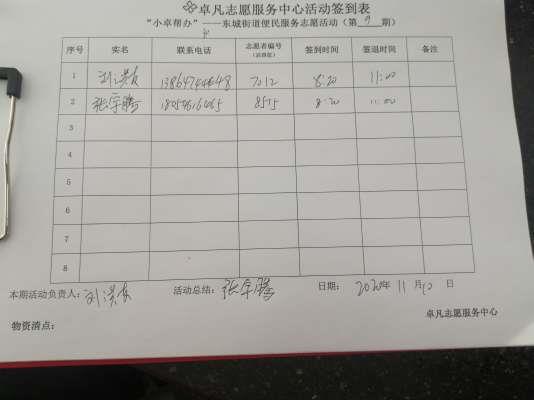 卓凡志愿服务中心活动签到表
“小卓帮办”——东城街道便民服务志愿活动（第9期）
序号 实名 联系电话 志愿者编号 签到时间 签退时间 备注
1 7012 8:20 11:00
2 张宇腾 8515 8:20 11:00
3
4
5
6
7
8
本期活动负责人： 活动总结：张宇腾 日期：2020年11月10日
物资清点：
卓凡志愿服务中心